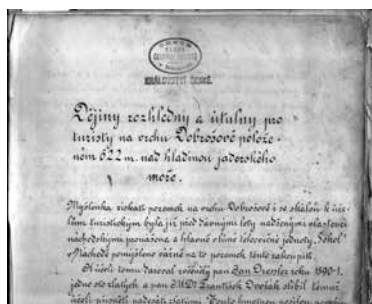 KRÁLOVSTVÍ ČESKÉ.
Dějiny rozhledny a útulny pro
turisty na vrchu Dobrošově polože-
ném 622 m. nad hladinou jaderského
moře.
Myšlenka získati pozemek na vrchu Dobrošově i se skálou k úče-
lům turistickým byla již před dávnými lety nadšenými vlastenci
náchodskými pronášena a hlavně v lůně tělocvičné jednoty „Sokol“
v Náchodě pomýšleno vážně na to pozemek tento zakoupiti.
K účeli tomu daroval pan Jan Dressler roku 1890-1.
jedno sto zlatých a pan MUDr František Dvořák slíbil témuž
účeli padesáti zlatými. Touto hmotnou